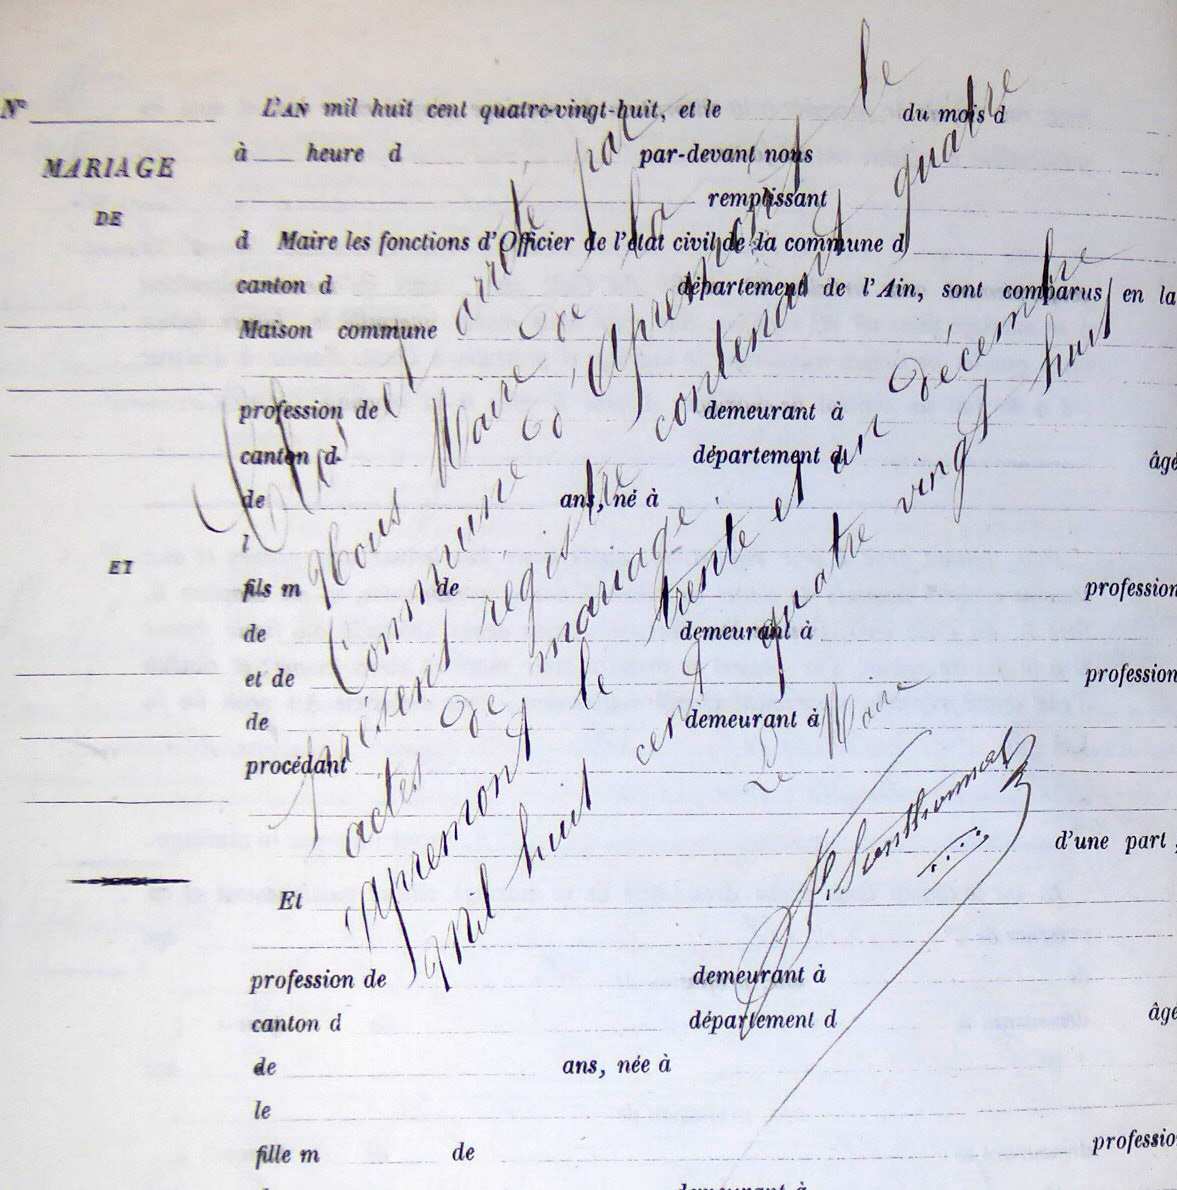 N° L'AN mil huit cent quatre-vingt-huit, et le du mois d
MARIAGE
DE
ET
à heure d par-devant nous
remplissant
d Maire les fonctions d'Officier de l'état civil de la commune d
canton d département de l'Ain, sont comparus en la
Maison commune
profession de demeurant à
canton d département d âgé
de ans, né à
l
fils m de profession
de demeurant à
et de profession
de demeurant à
procédant
d'une part,
Et
profession de demeurant à
canton d département d âgé
de ans, née à
le
fille m de professio
demeurant à
Clos et arrêté par
Nous Maire de la
Commune d'Apremont le
présent registre contenant quatre
actes de mariage.
Apremont le trente et un décembre
mil huit cent quatre vingt huit
Le Maire